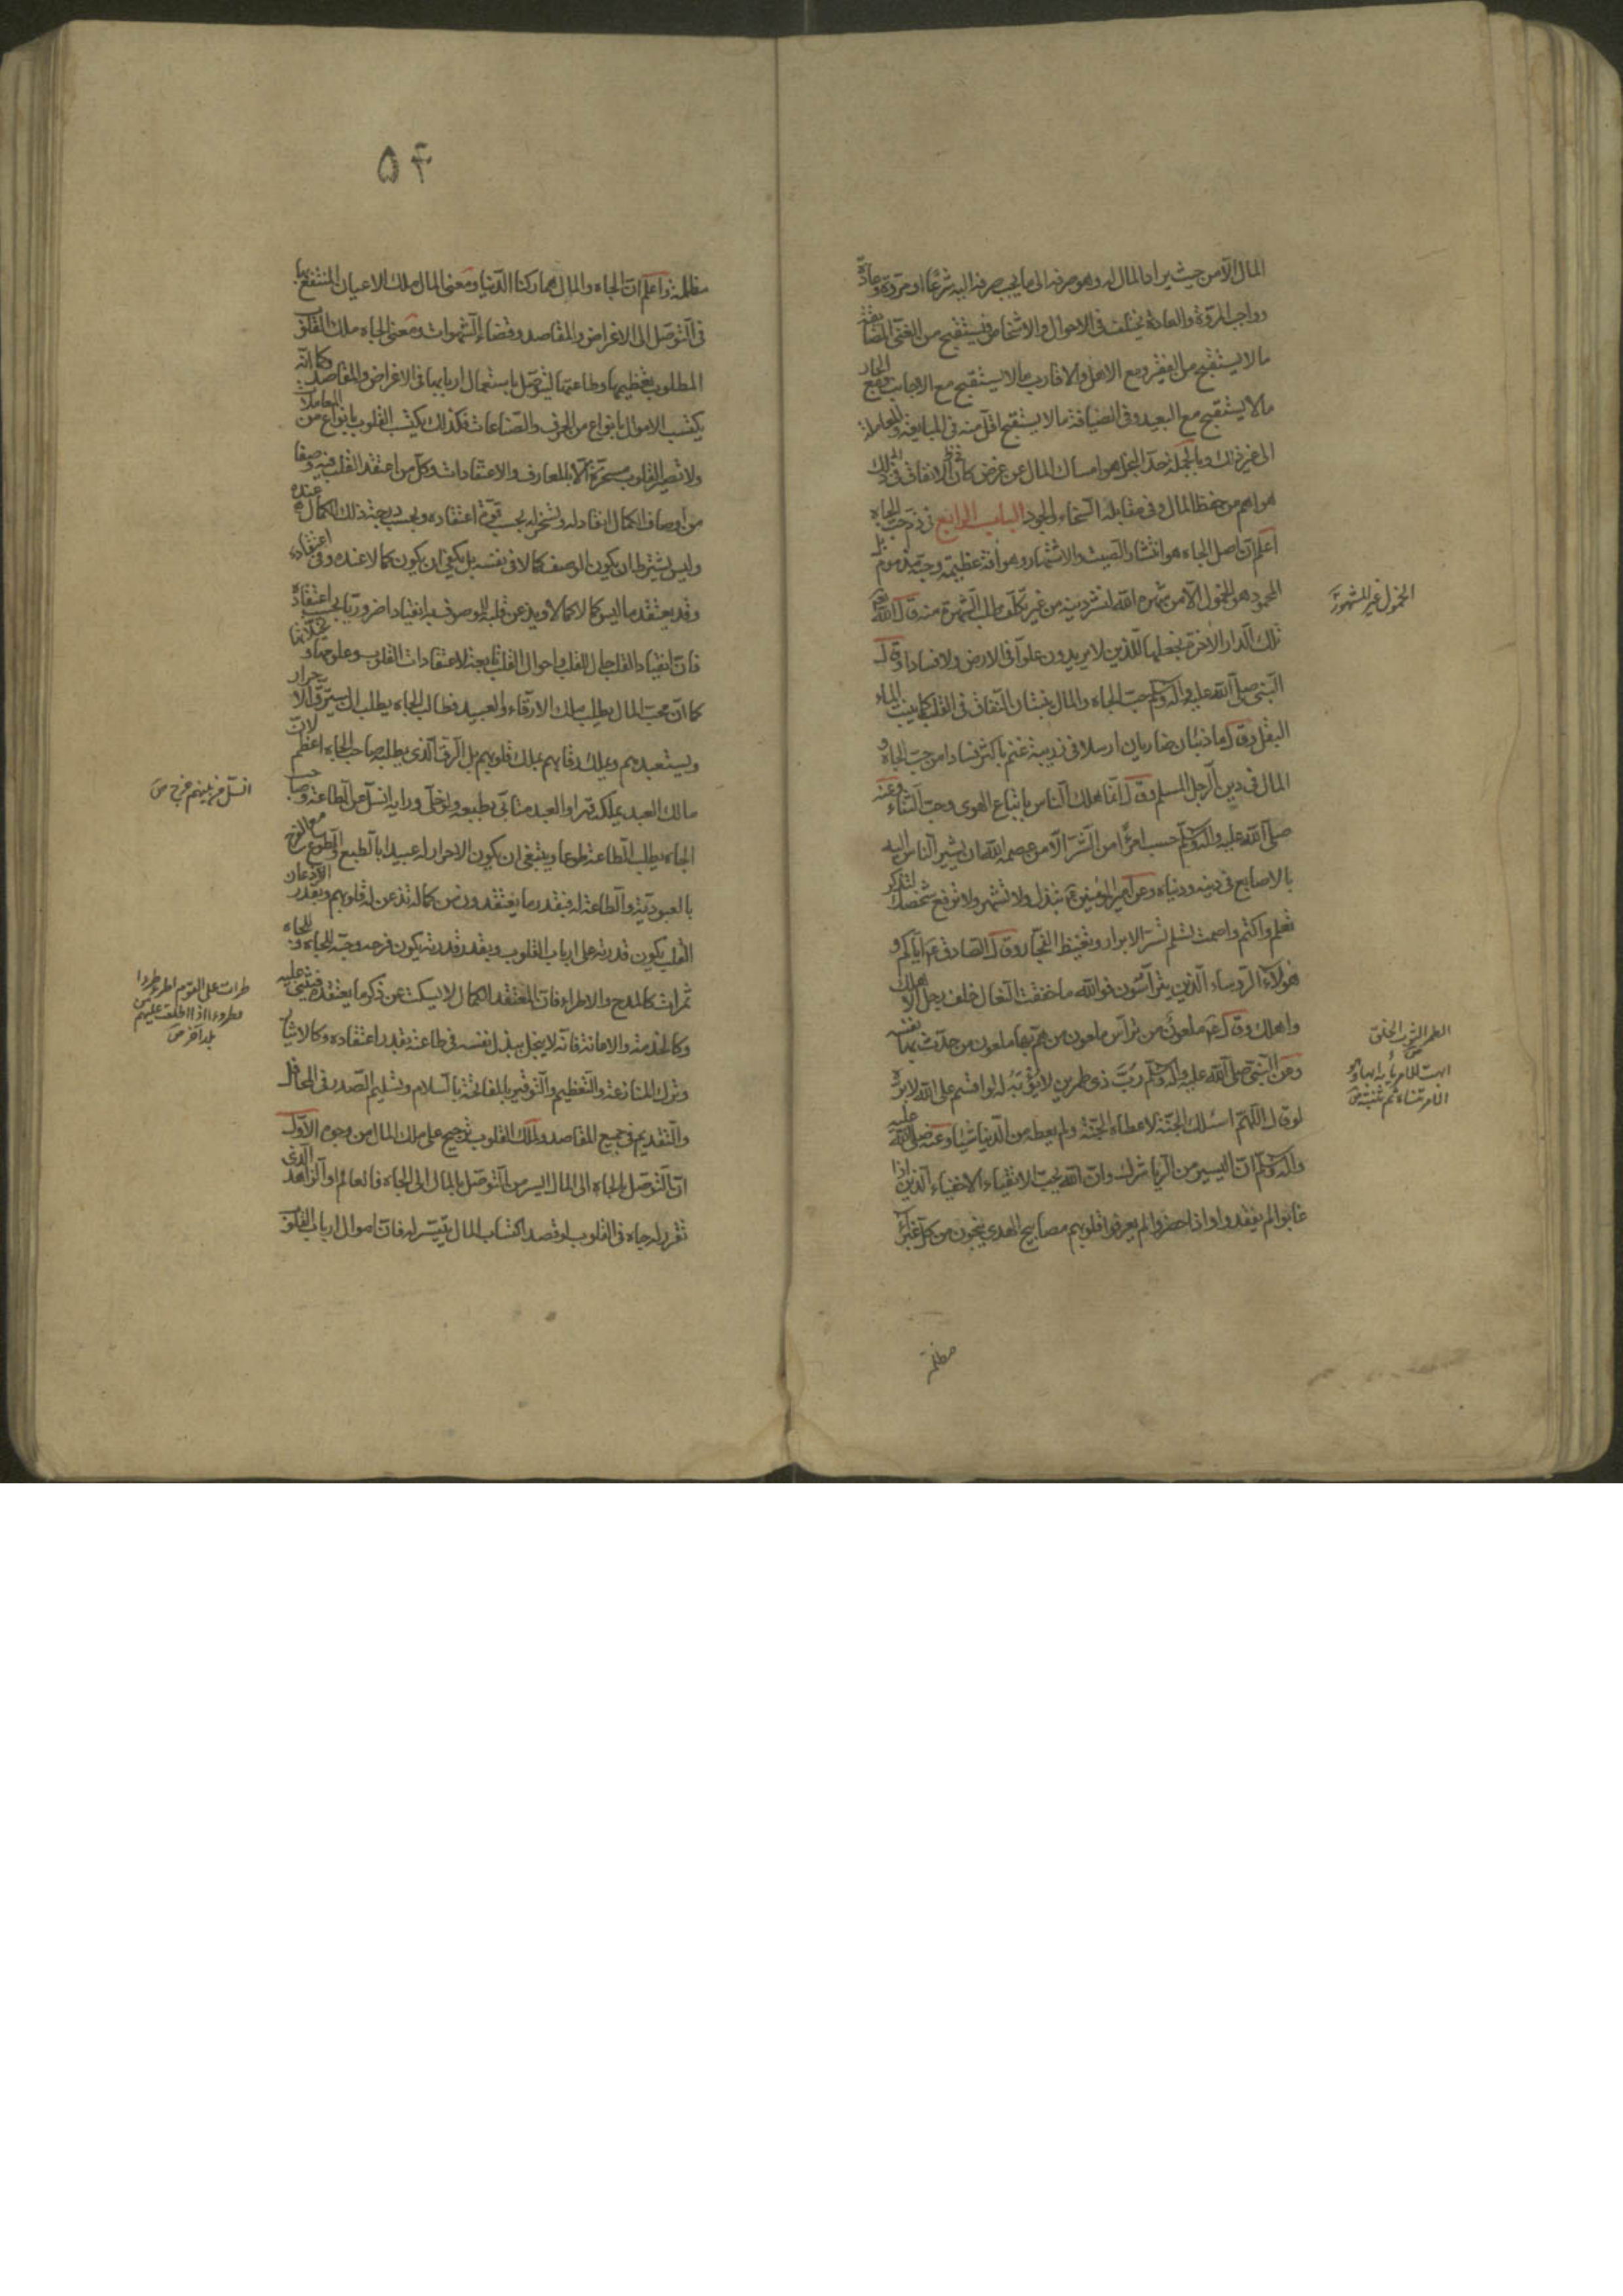 المال الا من حيث يراد المال له وهو صرفه الى ما يجب صرفه اليه شرعا او مروة وعادة
وواجب المروة والعادة يختلف فى الاحوال والاشخاص فيستقبح من الغنى المضايقة
ما لا يستقبح من الفقير ومع الاهل والاقارب ما لا يستقبح مع الاجانب ومع الجار
ما لا يستقبح مع البعيد وفى الضيافة ما لا يستقبح اقل منه فى المبايعة والمعاملة
الى غير ذلك وبالجملة حد البخل هو امساك المال عن غرض كان الانفاق فى ذلك الغرض
هو اهم من حفظ المال وفى مقابلة السخاء والجود الباب الرابع فى ذم حب الجاه
اعلم ان اصل الجاه هو انتشار الصيت والاشتهار وهو آفة عظيمة وحبه مذموم بل
المحمود هو الخمول الا من شهره الله لنشر دينه من غير تكلف طلب الشهرة منه قال الله تعالى
تلك الدار الآخرة نجعلها للذين لا يريدون علوا فى الارض ولا فسادا وقال
النبى صلى الله عليه وآله وسلم حب الجاه والمال ينبتان النفاق فى القلب كما ينبت الماء
البقل وقال ما ذئبان ضاريان ارسلا فى زريبة غنم باكثر فسادا من حب الجاه و
المال فى دين الرجل المسلم وقال انما هلاك الناس باتباع الهوى وحب الثناء وعنه
صلى الله عليه وآله وسلم حسب امرئ من الشر الا من عصمه الله ان يشير الناس اليه
بالاصابع فى دينه ودنياه وعن امير المؤمنين ع تبذل ولا تشهر ولا ترفع شخصك لتذكر
تعلم واكتم واصمت تسلم تسر الابرار وتغيظ الفجار وقال الصادق ع اياكم و
هؤلاء الرؤساء الذين يترأسون فوالله ما خفقت النعال خلف رجل الا هلك
واهلك وقال ع ملعون من ترأس ملعون من هم بها ملعون من حدث بها نفسه
وعن النبى صلى الله عليه وآله وسلم رب ذى طمرين لا يؤبه له لو اقسم على الله لابره
لو قال اللهم اسئلك الجنة لاعطاه الجنة ولم يعطه من الدنيا شيئا وعنه صلى الله عليه
وآله وسلم ان اليسير من الريا شرك وان الله يحب الاتقياء الاخفياء الذين اذا
غابوا لم يفقدوا واذا حضروا لم يعرفوا قلوبهم مصابيح الهدى ينجون من كل غبراء
مظلمة
الخمول غير المشهور
الطمر الثوب الخلق
۵۴
مظلمة واعلم ان الجاه والمال هما ركنا الدنيا ومعنى المال ملك الاعيان المنتفع بها
فى التوصل الى الاغراض والمقاصد وقضاء الشهوات ومعنى الجاه ملك القلوب
المطلوب تعظيمها وطاعتها ليتوصل باستعمال اربابها فى الاغراض والمقاصد وكما انه
يكتسب الاموال بانواع من الحرف والصناعات فكذلك يكتسب القلوب بانواع من المعاملات
ولا تصير القلوب مسخرة الا بالمعارف والاعتقادات وكل من اعتقد القلب فيه وصفا
من اوصاف الكمال انقاد له وتسخر له بحسب قوة اعتقاده وبحسب درجة ذلك الكمال عنده
وليس يشترط ان يكون الوصف كمالا فى نفسه بل يكفى ان يكون كمالا عنده وفى اعتقاده
وقد يعتقد ما ليس كمالا كمالا ويذعن قلبه للموصوف به انقيادا ضروريا بحسب اعتقاده
فان انقياد القلب حال للقلب واحوال القلب تابعة لاعتقادات القلوب وعلومها وتخيلاتها
كما ان محب المال يطلب ملك الارقاء والعبيد فطالب الجاه يطلب ان يسترق الاحرار
ويستعبدهم ويملك رقابهم بملك قلوبهم بل الرق الذى يطلبه صاحب الجاه اعظم لان
مالك العبد يملكه قهرا والعبد متابى بطبعه ولو خلى ورأيه انسل عن الطاعة وصاحب
الجاه يطلب الطاعة طوعا وينبغى ان يكون الاحرار له عبيدا بالطبع والطوع مع الفرح
بالعبودية والطاعة له فبقدر ما يعتقدون من كماله تذعن له قلوبهم وبقدر اذعان
القلب يكون قدرته على ارباب القلوب وبقدر قدرته يكون فرحه وحبه للجاه وللجاه
ثمرات كالمدح والاطراء فان المعتقد للكمال لا يسكت عن ذكر ما يعتقده فيثنى عليه
وكالخدمة والاعانة فانه لا يبخل ببذل نفسه فى طاعته بقدر اعتقاده وكالايثار
وترك المنازعة والتعظيم والتوقير بالمفاتحة بالسلام وتسليم الصدر فى المحافل
والتقديم فى جميع المقاصد ولملك القلوب ترجيح على ملك المال من وجوه الاول
ان التوصل بالجاه الى المال ايسر من التوصل بالمال الى الجاه فالعالم او الزاهد الذى
تقرر له جاه فى القلوب لو قصد اكتساب المال تيسر له فان اموال ارباب القلوب
انسل من بينهم خرج ص
طرأت على القوم
اذا طلعت عليهم
بلد آخر ص